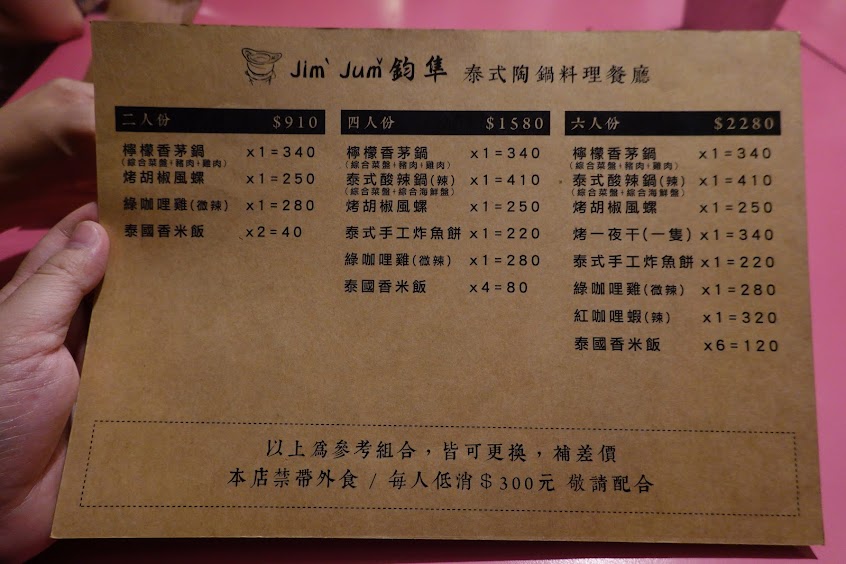 Jim' Jum 鈞隼 泰式陶鍋料理餐廳
二人份 $910
檸檬香茅鍋 x1=340
(綜合菜盤+豬肉+雞肉)
烤胡椒風螺 x1=250
綠咖哩雞(微辣) x1=280
泰國香米飯 x2=40
四人份 $1580
檸檬香茅鍋 x1=340
(綜合菜盤+豬肉+雞肉)
泰式酸辣鍋(辣) x1=410
(綜合菜盤+綜合海鮮盤)
烤胡椒風螺 x1=250
泰式手工炸魚餅 x1=220
綠咖哩雞(微辣) x1=280
泰國香米飯 x4=80
六人份 $2280
檸檬香茅鍋 x1=340
(綜合菜盤+豬肉+雞肉)
泰式酸辣鍋(辣) x1=410
(綜合菜盤+綜合海鮮盤)
烤胡椒風螺 x1=250
烤一夜干(一隻) x1=340
泰式手工炸魚餅 x1=220
綠咖哩雞(微辣) x1=280
紅咖哩蝦(辣) x1=320
泰國香米飯 x6=120
以上為參考組合，皆可更換，補差價
本店禁帶外食 / 每人低消$300元 敬請配合